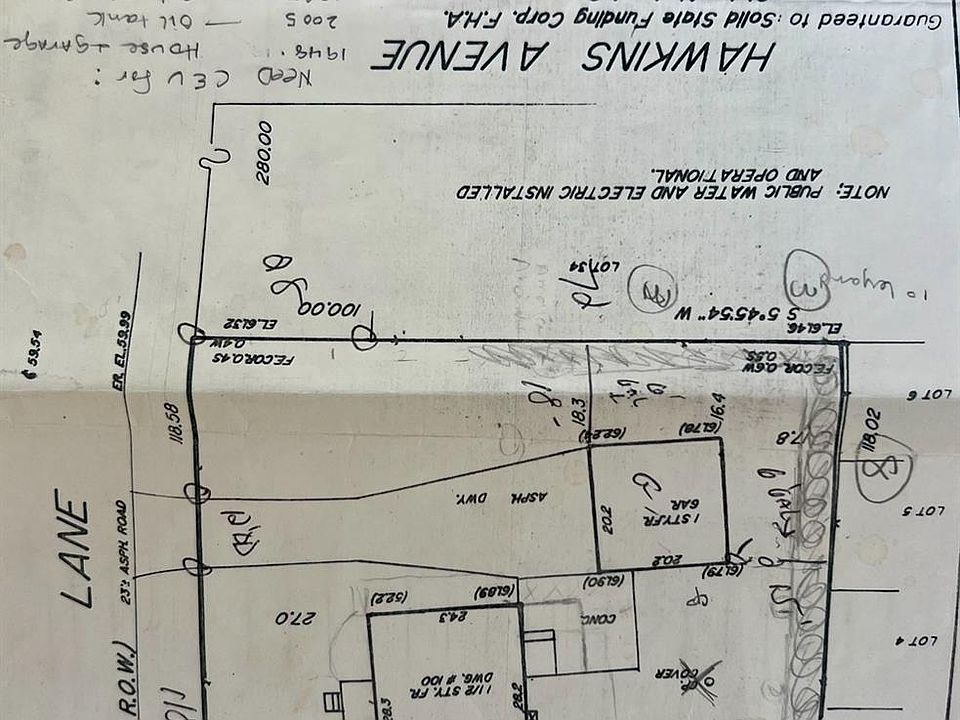 Guaranteed to: Solid State Funding Corp. F.H.A.
HAWKINS AVENUE
Need CEU for:
1948 House + garage
2005 - Oil tank
280.00
NOTE; PUBLIC WATER AND ELECTRIC INSTALLED
AND OPERATIONAL.
LOT 34
S 5°45'54" W
100.00
EL. 61.46
EL. 61.32
FE COR. 0.6W
0.5S
FE COR. 0.4S
0.4W
LOT 6
118.02
LOT 5
LOT 4
17.8
16.4
18.3
(61.78)
1 STY. FR.
GAR.
20.2
20.2
(61.79)
(61.90)
ASPH. DWY.
118.58
ER. EL. 59.99
59.54
LANE
23'± ASPH. ROAD
R.O.W.)
27.0
(52.2)
(61.89)
24.3
1 1/2 STY. FR.
DWG. # 100
28.3
28.2
CONC.
COVER